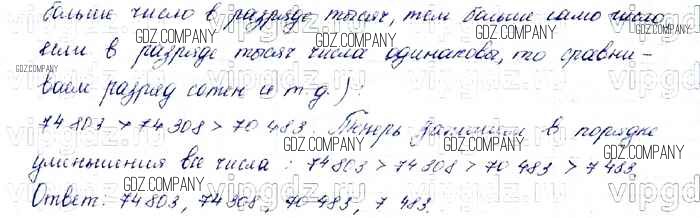 больше число в разряде тысяч, тем больше само число,
если в разряде тысяч числа одинаковы, то сравни-
ваем разряд сотен и т.д.).
74 803 > 74 308 > 70 483. Теперь запишем в порядке
уменьшения все числа: 74 803 > 74 308 > 70 483 > 7 483.
Ответ: 74 803, 74 308, 70 483, 7 483.
GDZ.COMPANY
vipgdz.ru